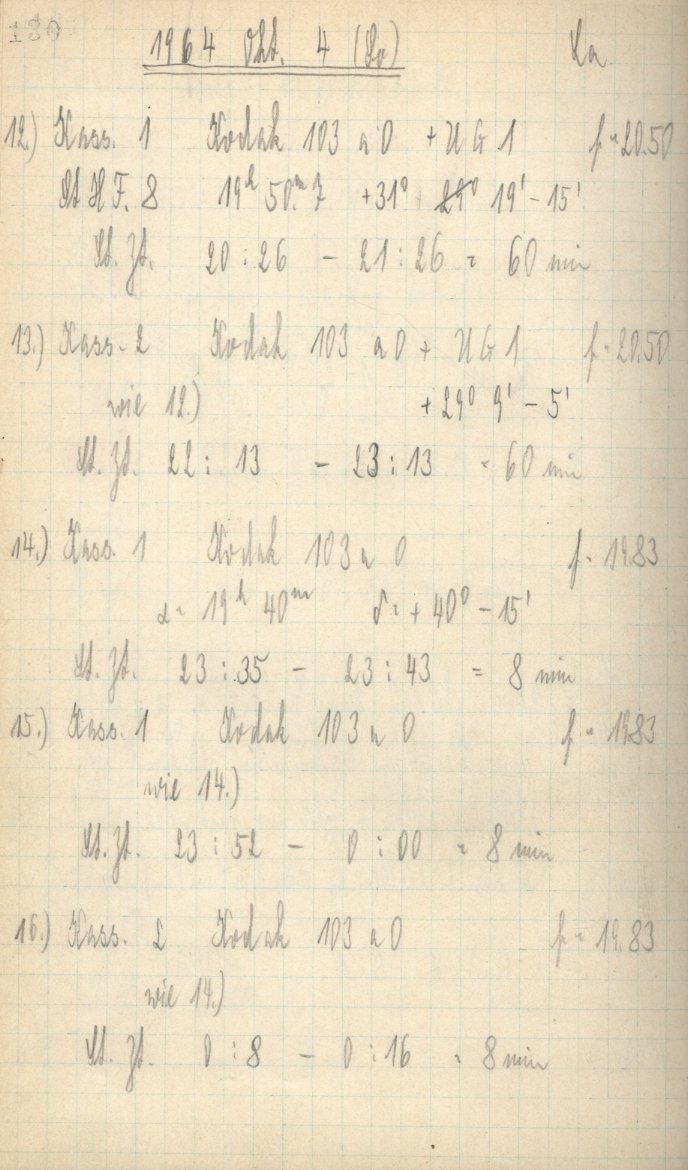 130
1964 Okt. 4 (So) La
12.) Kass. 1 Kodak 103 a O + UG 1 f = 20.50
St H F. 8 19h 50m.7 +31° 29° 19' - 15'
St. Zt. 20 : 26 - 21 : 26 = 60 min
13.) Kass. 2 Kodak 103 a O + UG 1 f = 20.50
wie 12.) + 29° 9' - 5'
St. Zt. 22 : 13 - 23 : 13 = 60 min
14.) Kass. 1 Kodak 103 a O f = 19.83
α = 19h 40m δ = + 40° - 15'
St. Zt. 23 : 35 - 23 : 43 = 8 min
15.) Kass. 1 Kodak 103 a O f = 19.83
wie 14.)
St. Zt. 23 : 52 - 0 : 00 = 8 min
16.) Kass. 2 Kodak 103 a O f = 19.83
wie 14.)
St. Zt. 0 : 8 - 0 : 16 = 8 min